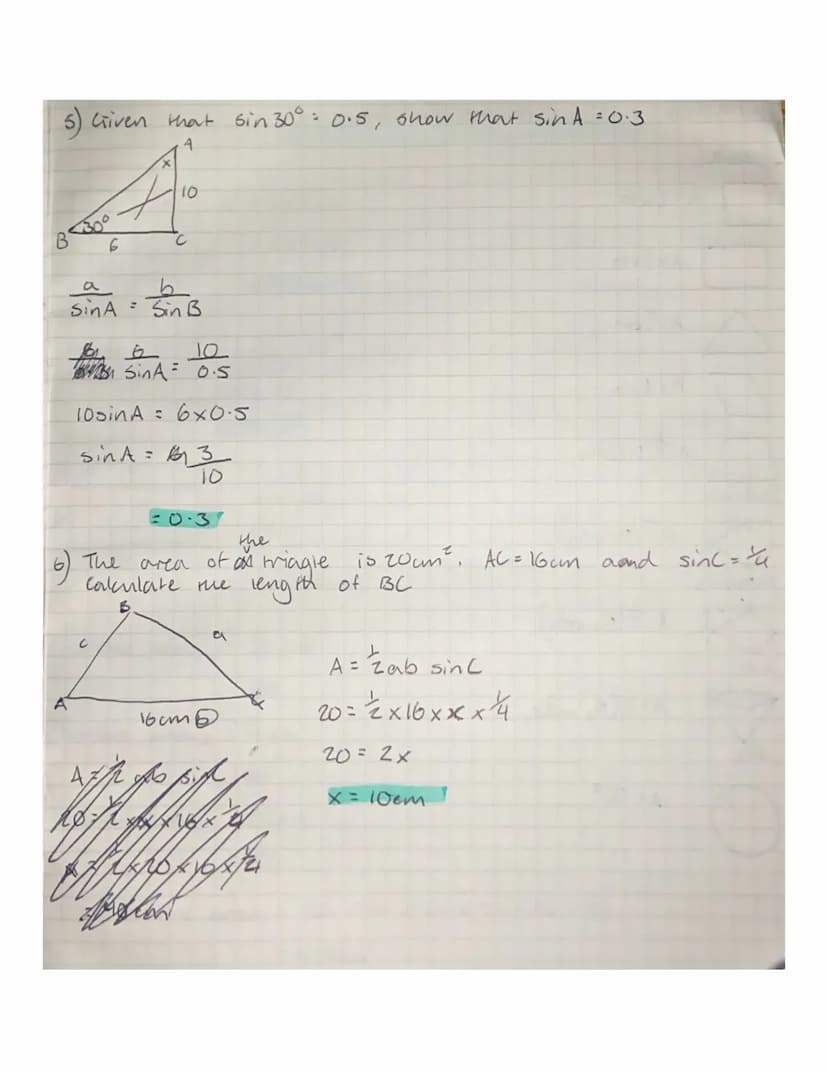 5) Given that sin30° = 0.5, show that sinA = 0.3
A
x
10
30°
B
6
C
a/sinA = b/SinB
6/sinA = 10/0.5
10sinA = 6×0.5
sinA = 3/10
= 0.3
the
6) The area of triagle is 20cm². AC = 16cm aand sinC = 1/4
Calculate the length of BC
B
c
a
A
C
16cm b
A = 1/2ab sinC
20 = 1/2 × 16 × x × 1/4
20 = 2x
x = 10cm
A = 1/2 ab sinC
20 = 1/2 × x × 16 × 1/4
x = 1/2 × 20 × 16 × 1/4